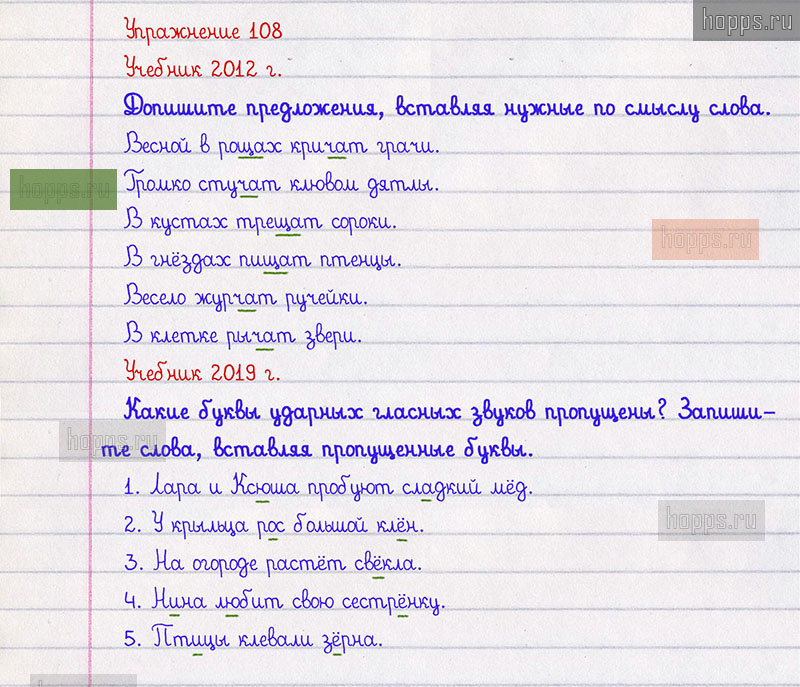 hopps.ru
Упражнение 108
Учебник 2012 г.
Допишите предложения, вставляя нужные по смыслу слова.
Весной в рощах кричат грачи.
hopps.ru
Громко стучат клювом дятлы.
В кустах трещат сороки.
hopps.ru
В гнёздах пищат птенцы.
Весело журчат ручейки.
В клетке рычат звери.
Учебник 2019 г.
Какие буквы ударных гласных звуков пропущены? Запиши-
hopps.ru
те слова, вставляя пропущенные буквы.
1. Лара и Ксюша пробуют сладкий мёд.
2. У крыльца рос большой клён.
hopps.ru
3. На огороде растёт свёкла.
4. Нина любит свою сестрёнку.
5. Птицы клевали зёрна.